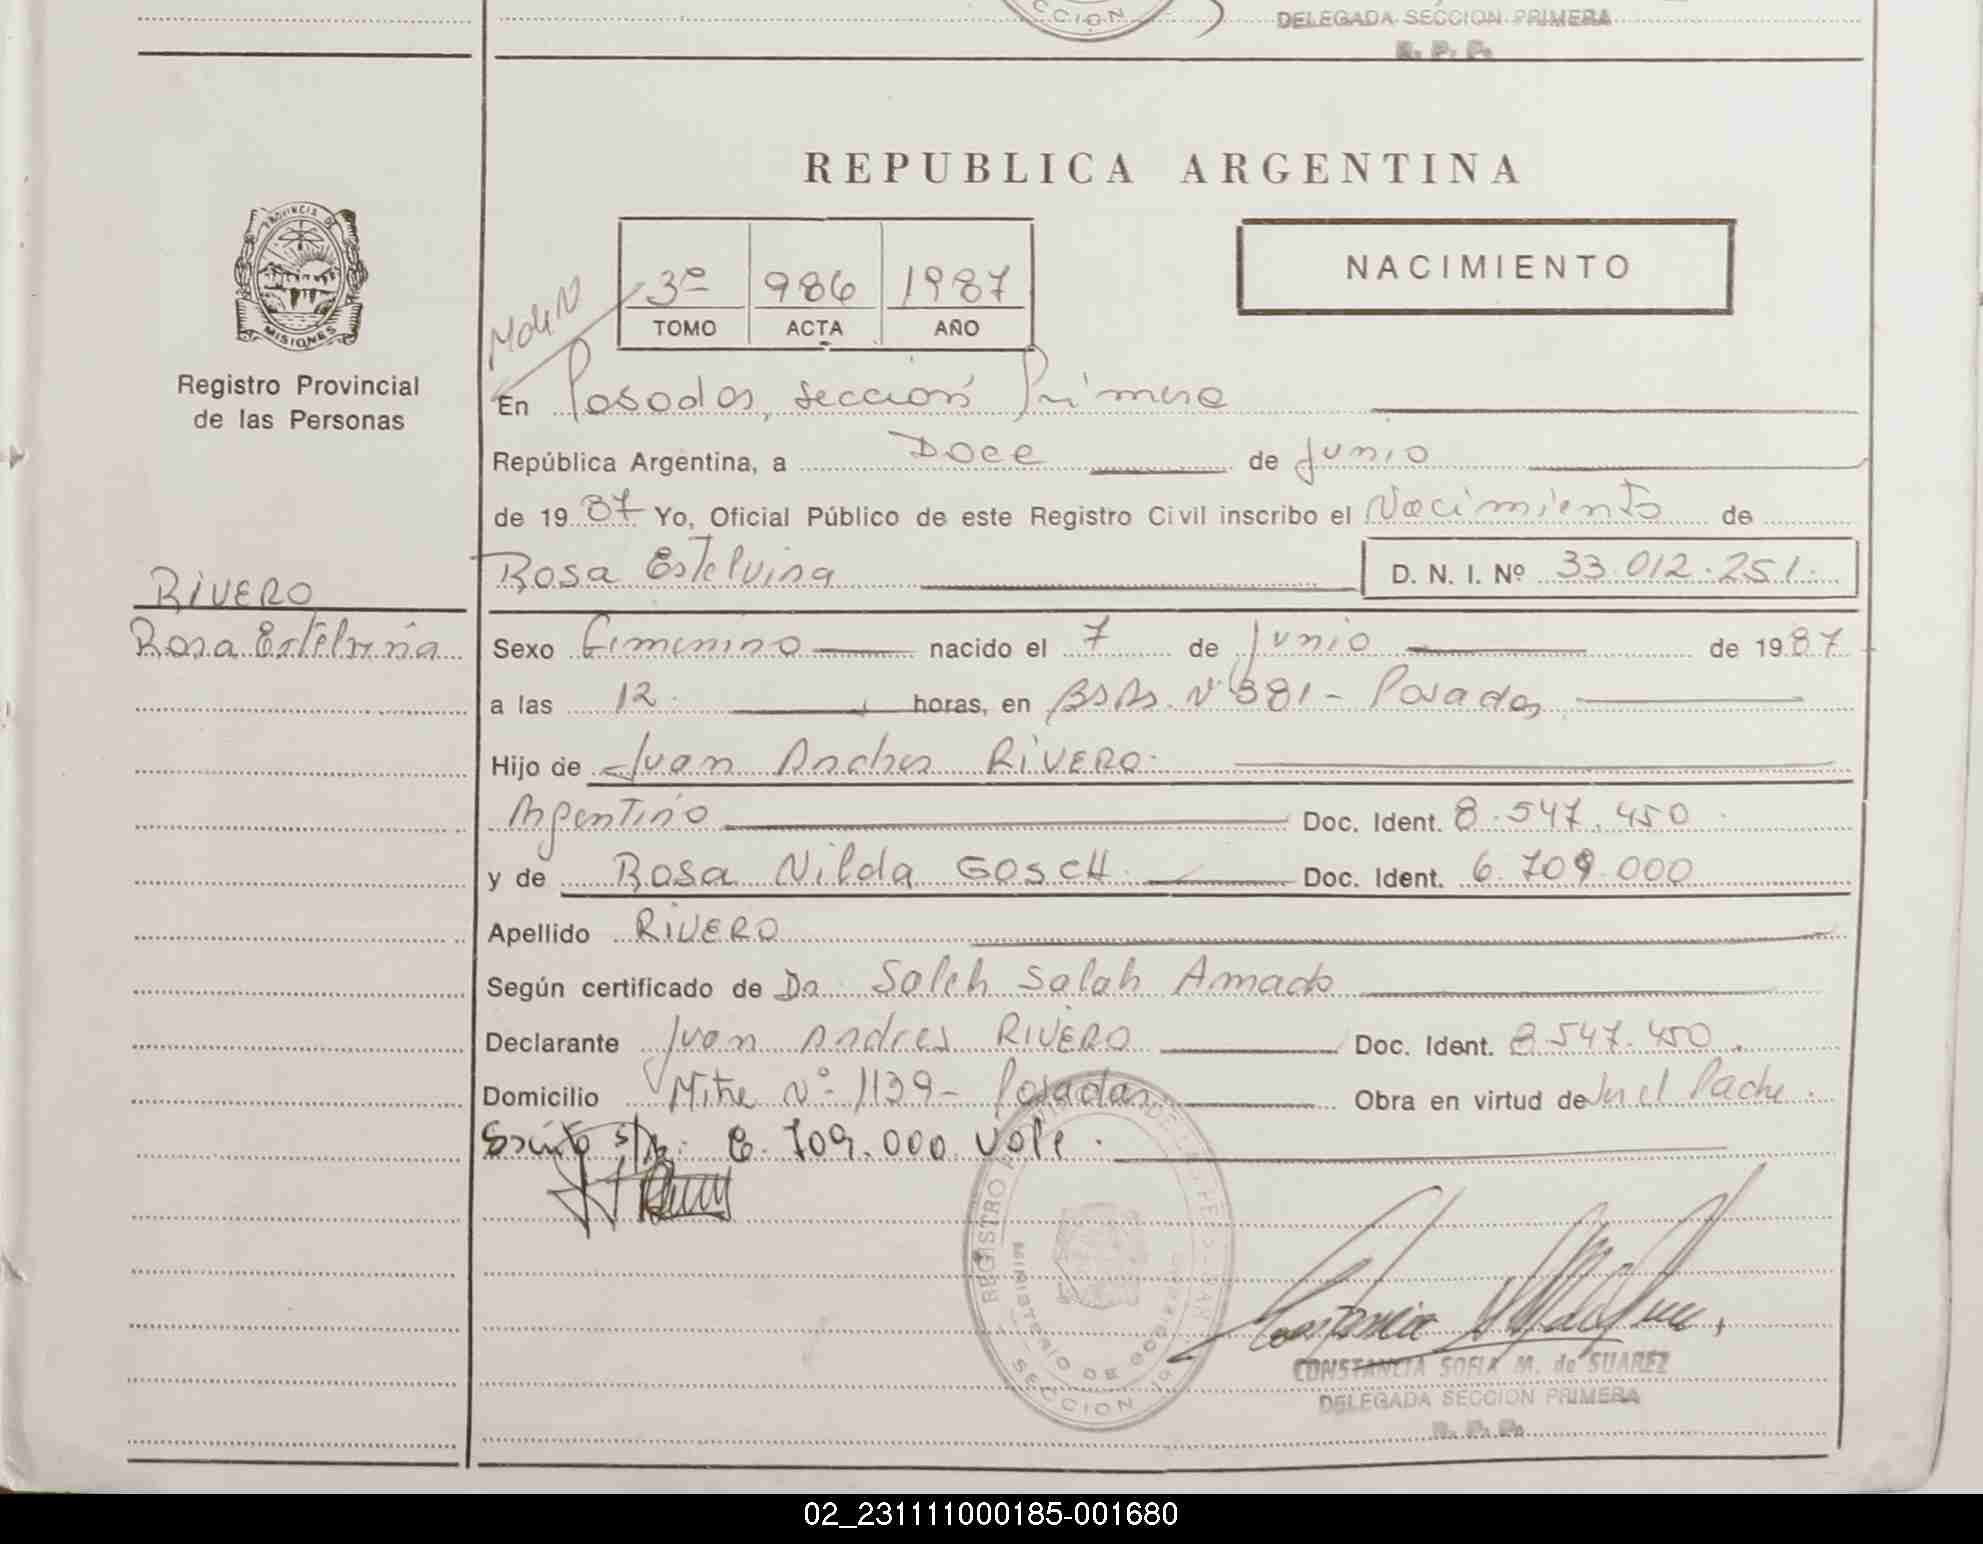 DELEGADA SECCION PRIMERA
R. P. P.
REPUBLICA ARGENTINA
PROVINCIA DE
MISIONES
Registro Provincial
de las Personas
3º 986 1987
TOMO ACTA AÑO
NACIMIENTO
En Posadas, sección Primera
República Argentina, a Doce de Junio
de 1987 Yo, Oficial Público de este Registro Civil inscribo el Nacimiento de
Rosa Estelvina D. N. I. Nº 33.012.251.
RIVERO
Rosa Estelvina
Sexo Femenino nacido el 7 de Junio de 1987
a las 12. horas, en Bs As. Nº 381 - Posadas
Hijo de Juan Andres RIVERO.
Argentino Doc. Ident. 8.547.450
y de Rosa Nilda GOSCH. Doc. Ident. 6.709.000
Apellido RIVERO
Según certificado de Da. Saleh Salah Amado
Declarante Juan Andres RIVERO Doc. Ident. 8.547.450.
Domicilio Mitre Nº 1139 - Posadas Obra en virtud de Ser el Padre.
6.709.000 Vale.
REGISTRO
MINISTERIO DE GOBIERNO
SECCION 1ª
CONSTANCIA SOFIA M. de SUAREZ
DELEGADA SECCION PRIMERA
R. P. P.
02_231111000185-001680